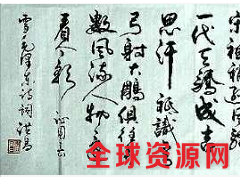 宋祖稍逊风骚
一代天骄成吉
思汗祇識
弓射大鵰俱往
數风流人物还
看今朝 沁园春
雪毛泽东诗词
全球资源网